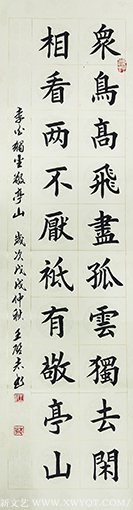 衆鳥高飛盡孤雲獨去閑
相看两不厭祇有敬亭山
李白獨坐敬亭山 歲次戊戌仲秋 王
新文艺 www.XWYOT.com